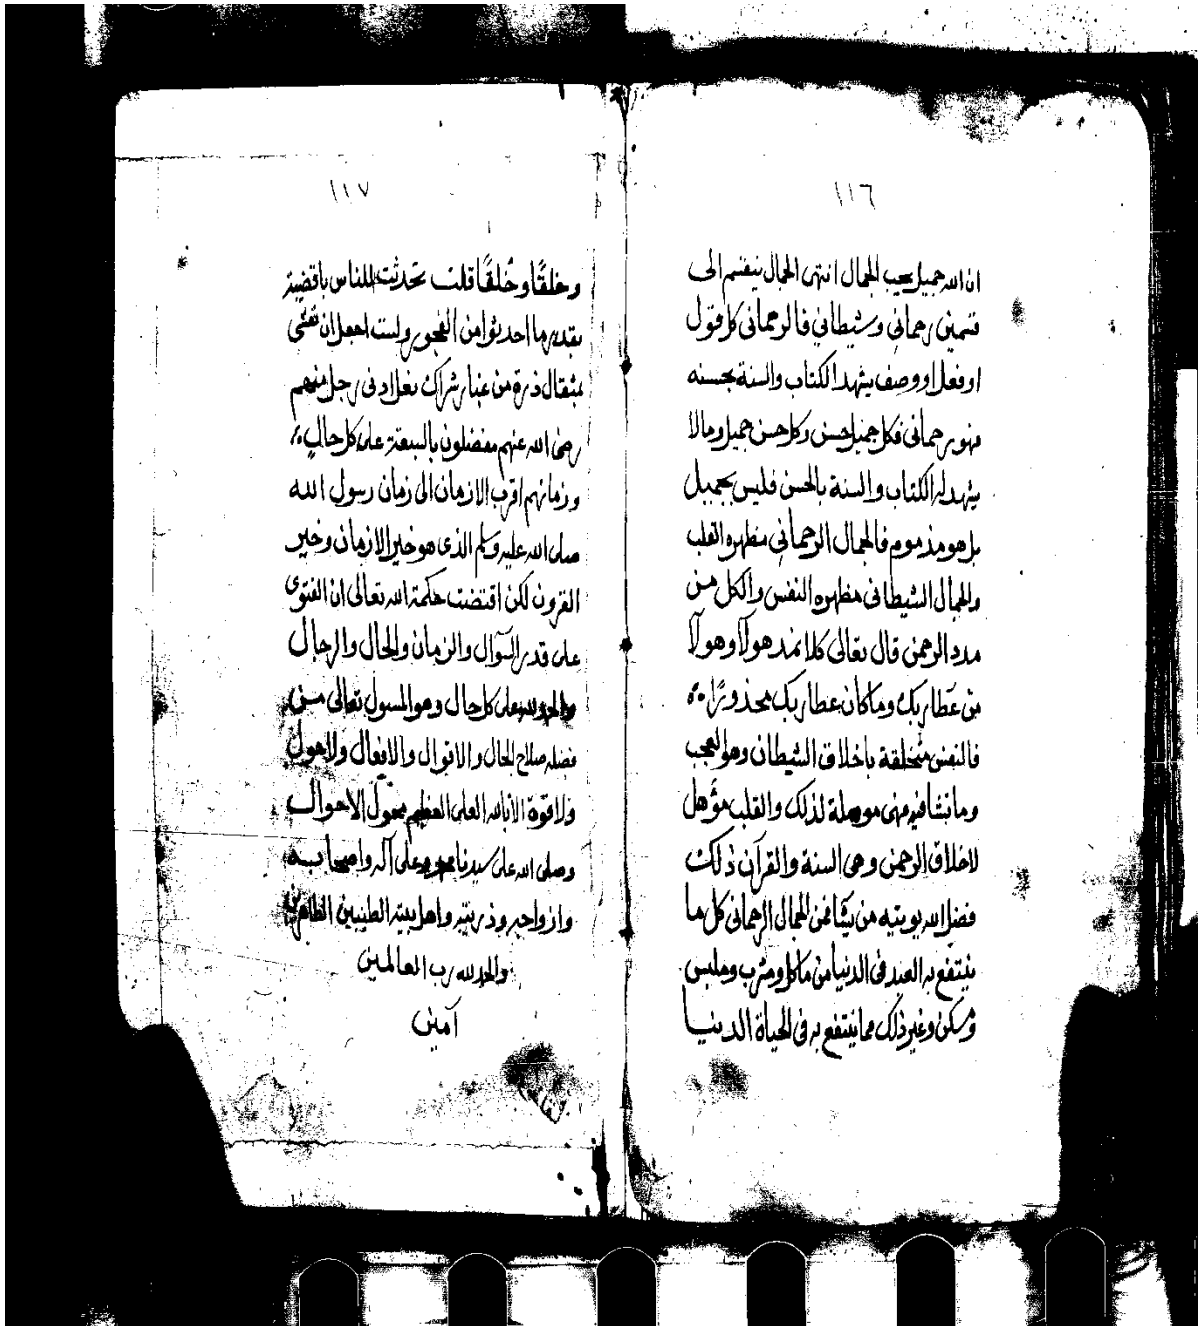 ١١٦
ان الله جميل يحب الجمال انتهى الجمال ينقسم الى
قسمين رحماني وشيطاني فالرحماني كل قول
او فعل او وصف يشهد الكتاب والسنة بحسنه
فهو رحماني فكل جميل حسن وكل حسن جميل وما لا
يشهد له الكتاب والسنة بالحسن فليس بجميل
بل هو مذموم فالجمال الرحماني مظهره القلب
والجمال الشيطاني مظهره النفس والكل من
مدد الرحمن قال تعالى كلا نمد هولآ وهولآ
من عطا ربك وما كان عطا ربك محذورًا
فالنفس متخلقة باخلاق الشيطان وهو العجب
وما نشا فيه فهى موهلة لذلك والقلب مؤهل
لاخلاق الرحمن وهى السنة والقرآن ذلك
فضل الله يوتيه من يشا فمن الجمال الرحمانى كل ما
ينتفع به العبد فى الدنيا من ماكل ومشرب وملبس
ومسكن وغير ذلك مما ينتفع به فى الحياة الدنيا
١١٧
وخلقًا وخُلقًا قلت تحدثت للناس باقضية
بقدر ما احدثوا من الفجور ولست اجعل ان تفتى
بمثقال ذرة من غبار شراك نعل ادنى رجل منهم
رضى الله عنهم مفضلون بالسبقة على كل حالٍ
وزمانهم اقرب الازمان الى زمان رسول الله
صلى الله عليه وسلم الذى هو خير الازمان وخير
القرون لكن اقتضت حكمة الله تعالى ان الفتوى
على قدر السوآل والزمان والحال والرجال
والحمد لله على كل حال وهو المسول تعالى من
فضله صلاح الحال والاقوال والافعال ولا حول
ولا قوة الا بالله العلى العظيم محول الاحوال
وصلى الله على سيدنا محمد وعلى آله واصحابه
وازواجه وذريته واهل بيته الطيبين الطاهرين
والحمد لله رب العالمين
آمين